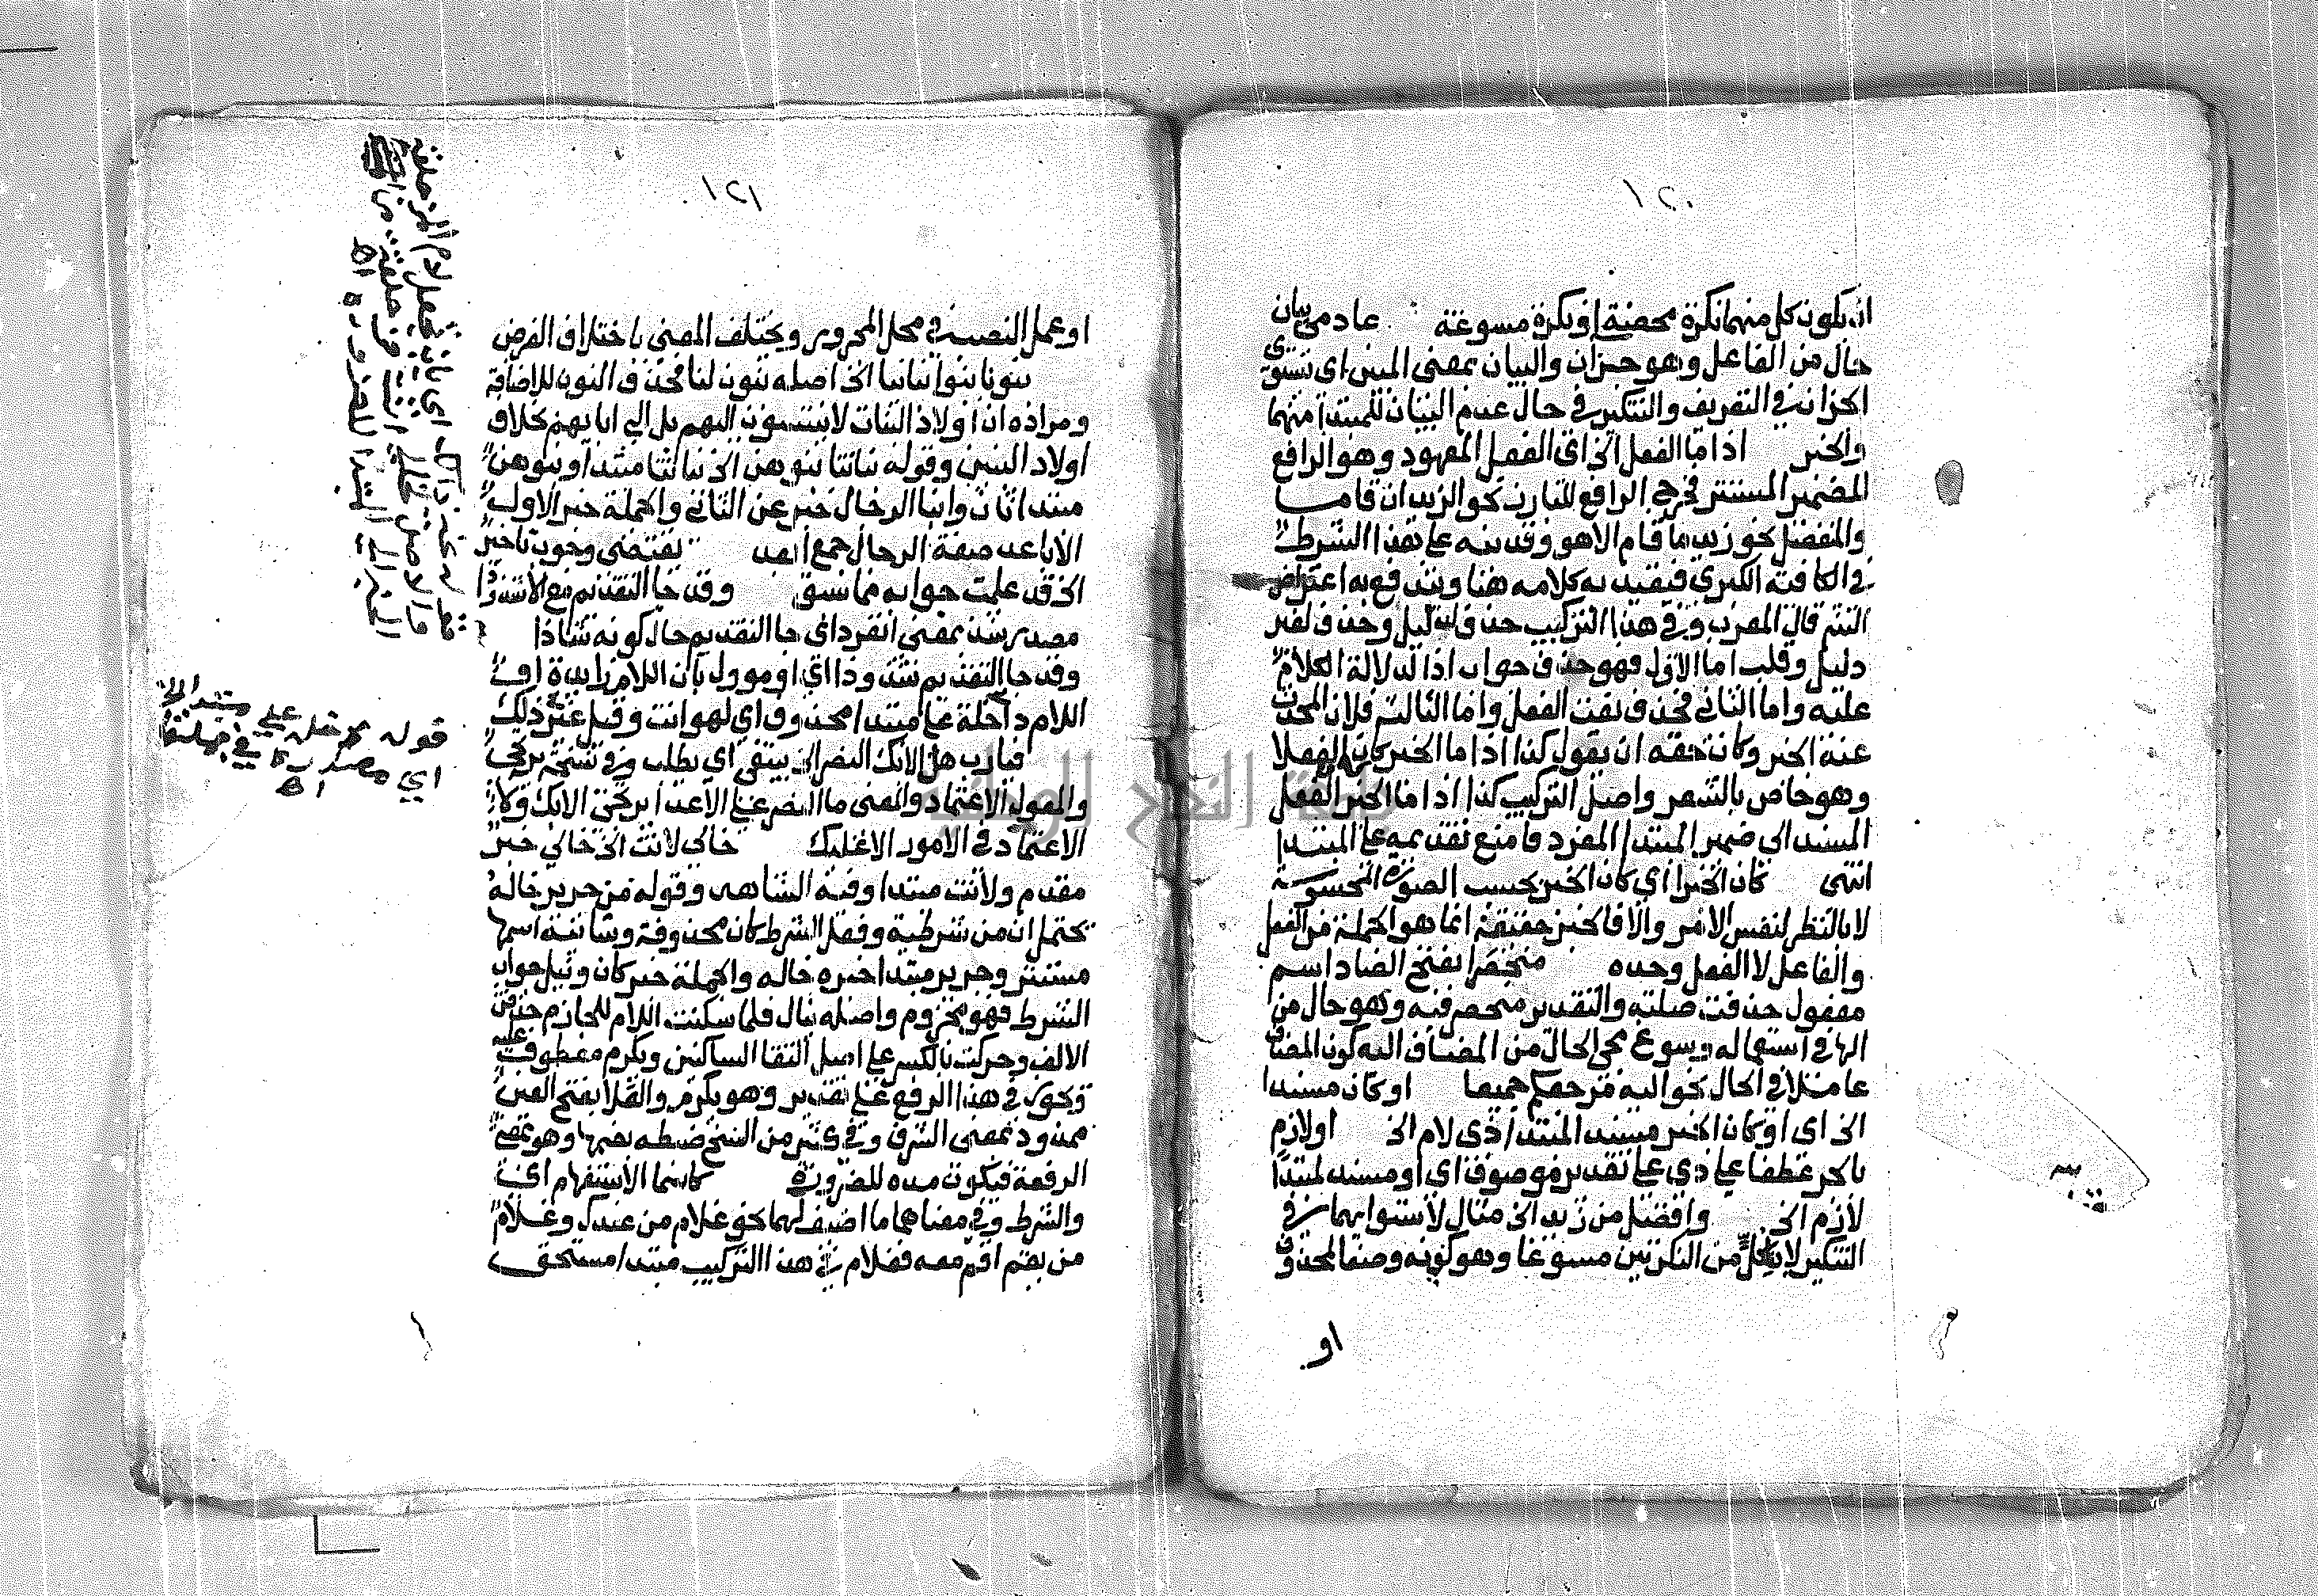 ١٢٠
ان يكون كل منهما نكرة محضة او نكرة مسوغة عادمي بيان
حال من الفاعل وهو جزان والبيان بمعنى المبين اي يستوي
الجزان في التعريف والتنكير في حال عدم البيان للمبتدا منهما
والخبر اذا ما الفعل الخ اي الفعل المعهود وهو الرافع
المضمير المستتر فخرج الرافع للبارز نحو الزيدان قاما
والمنفصل نحو زيد ما قام الا هو وقد نبه على هذا الشرط
في الكافية الكبرى فيقيد به كلامه هنا ويندفع به اعتراض
الشم قال المعرب وفي هذا التركيب حذف لدليل وحذف لغير
دليل وقلب اما الاول فهو حذف جواب اذا لدلالة الكلام
عليه واما الثاني فحذف نعت الفعل واما الثالث فلان المحدث
عنه الخبر وكان حقه ان يقول كذا اذا ما الخبر كان الفعلا
وهو خاص بالشعر واصل التركيب كذا اذا ما الخبر الفعل
المسند الى ضمير المبتدا المفرد فامنع تقديمه على المبتدا
انتهى كان الخبرا اي كان الخبر بحسب الصورة المحسوسة
لا بالنظر لنفس الامر والا فالخبر حقيقة انما هو الجملة من الفعل
والفاعل لا الفعل وحده منحصرا بفتح الصاد اسم
مفعول حذفت صلته والتقدير منحصر فيه وهو حال من
الها في استعماله ويسوغ مجى الحال من المضاف اليه كون المضاف
عاملا في الحال نحو اليه مرجعكم جميعا او كان مسندا
الخ اي او كان الخبر مسند المبتدا ذي لام الخ او لازم
بالجر عطفا على ذي على تقدير موصوف اي او مسند لمبتدا
لازم الخ وافضل من زيد الخ مثال لاستوايهما في
التنكير لان لكل من النكرتين مسوغا وهو كونه وصفا لمحذوف
او
١٢١
او عمل النصب في محل المجرور ويختلف المعنى باختلاف الغرض
بنونا بنوا بناتنا الخ اصله بنون لنا فحذف النون للاضافة
ومراده ان اولاد البنات لا ينتسبون اليهم بل الى ابايهم بخلاف
اولاد البنين وقوله بناتنا بنوهن الخ بناتنا مبتدا وبنوهن
مبتدا ثان وابنا الرجال خبر عن الثاني والجملة خبر الاول
الاباعد صفة الرجال جمع ابعد يقتضى وجوب تاخير
الخ قد علمت جوابه مما سبق وقد جا التقديم مع الا شذوذا
مصدر شذ بمعنى انفرد اي جا التقديم حال كونه شاذا
وقد جا التقديم شذوذا اي او موول بان اللام زايدة او
اللام داخلة على مبتدا محذوف اي لهو انت وقيل غير ذلك
فيا رب هل الا بك النصر الخ يبتغى اي يطلب وفي نسخة يرتجى
والمعول الاعتماد والمعنى ما النصر على الاعدا يرتجى الا بك ولا
الاعتماد في الامور الا عليك خالي لانت الخ خالي خبر
مقدم ولانت مبتدا وفيه الشاهد وقوله من جرير خاله
يحتمل ان من شرطية وفعل الشرط كان محذوفة وشانية اسمها
مستتر وجرير مبتدا خبره خاله والجملة خبر كان وينل جواب
الشرط فهو مجزوم واصله ينال فلما سكنت اللام للجازم حذفت
الالف وحركت بالكسر على اصل التقا الساكنين ويكرم معطوف عليه
ويجوز في هذا الرفع على تقدير وهو يكرم والعلا بفتح العين
ممدود بمعنى الشرف وفي كثير من النسخ ضبطه بضمها وهو بمعنى
الرفعة فيكون مده للضرورة كاسما الاستفهام اي
والشرط وفي معناهما ما اضيف اليهما نحو غلام من عندك وغلام
من يقم اقم معه فغلام في هذا التركيب مبتدا مستحق
قوله داخلة على مبتدا الا
اي مصدرة في جملتها
اه